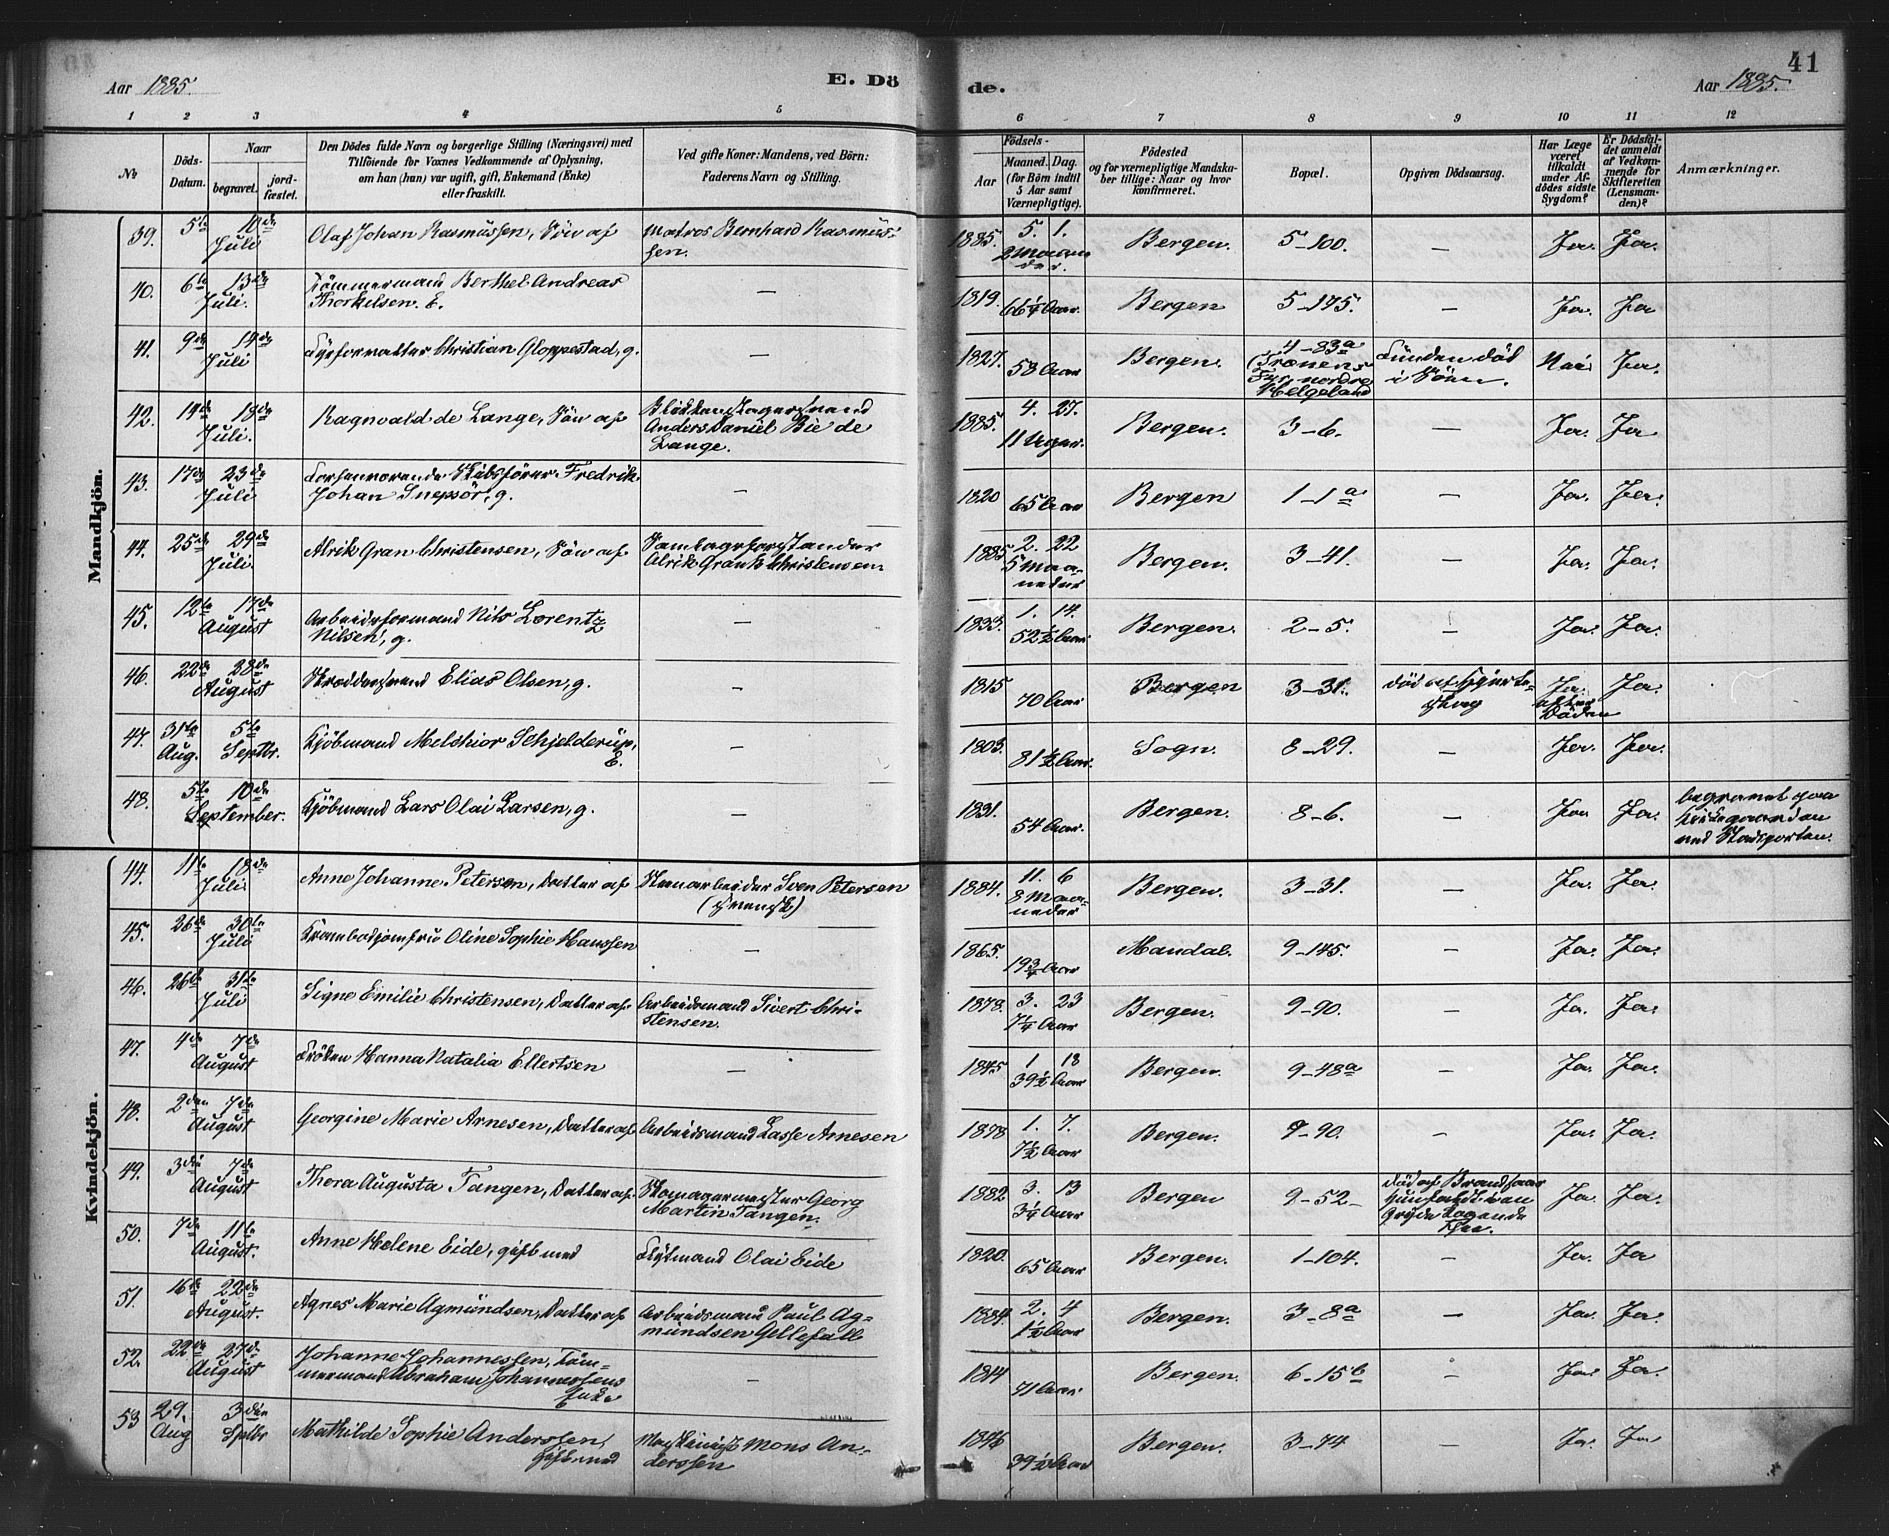 Aar 1885. E. Dö
de. Aar 1885. 41
1 2 3 4 5 6 7 8 9 10 11 12
No Döds-Datum. Naar begravet. jordfæstet. Den Dödes fulde Navn og borgerlige Stilling (Næringsvei) med Tilföiende for Voxnes Vedkommende af Oplysning, om han (hun) var ugift, gift, Enkemand (Enke) eller fraskilt. Ved gifte Koner: Mandens, ved Börn: Faderens Navn og Stilling. Födsels- Aar Maaned. Dag. (for Börn indtil 5 Aar samt Værnepligtige). Födested og for værnepligtige Mandskaber tillige: Naar og hvor konfirmeret. Bopæl. Opgiven Dödsaarsag. Har Læge været tilkaldt under Afdödes sidste Sygdom? Er Dödsfaldet anmeldt af Vedkommende for Skifteretten (Lensmanden)? Anmærkninger.
Mandkjön.
39. 5te 10de Juli Olaf Johan Rasmussen, Søn af Matros Bernhard Rasmussen. 1885. 5. 1. 2 Maaneder. Bergen. 5-100. — Ja. Ja.
40. 6te 13de Juli. Tømmermand Berthel Andreas Thorkilsen. E. — 1819. 66¼ Aar. Bergen 5-175. — Ja. Ja
41. 9de 14de Juli Fyrforvalter Christian Gloppestad, g. — 1827. 58 Aar Bergen. 4-83a (Trænens Fyr, nordre Helgeland Funden død i Søen. Nei Ja.
42. 14de 18de Juli. Ragnvald de Lange, Søn af Blikkenslagersvend Anders Daniel Bie de Lange. 1885. 4. 27. 11 Uger. Bergen. 3-6. — Ja. Ja
43. 17de 23de Juli Forhenværende Skibsfører Fredrik Johan Sneysör, g. — 1820 65 Aar Bergen 1-1a — Ja. Ja.
44. 25de 29de Juli. Alrik Gran Christensen, Søn af Samlagsforstander Alrik Grank Christensen. 1885. 2. 22 5 Maaneder Bergen. 3-41. — Ja. Ja.
45. 12te 17de August Arbeidsformand Nils Lorentz Nilsen, g. — 1833. 1. 14. 52½ Aar. Bergen. 2-5. — Ja. Ja.
46. 22de 28de August Skræddersvend Elias Olsen, g. — 1815 70 Aar Bergen 3-31. død af Hjerteslag Ja. efter Døden Ja.
47. 31te Aug. 5te Septbr. Kjøbmand Melchior Schjelderup, E. — 1803. 81½ Aar. Sogn. 8-29. — Ja. Ja.
48. 5te 10de September. Kjøbmand Lars Olai Larsen, g. — 1831. 54 Aar. Bergen. 8-6. — Ja Ja. begravet paa Kirkegaarden ved Stadsporten.
Kvindekjön.
44. 11te 18de Juli Anne Johanne Petersen, Datter af Stenarbeider Sven Petersen (svensk) 1884. 11. 6 8 Maaneder Bergen. 3-31. — Ja. Ja.
45. 26de 30te Juli Krambodjomfru Oline Sophie Hanssen — 1865. 19¾ Aar Mandal. 9-145. — Ja. Ja.
46. 26de 31te Juli Signe Emilie Christensen, Datter af Arbeidsmand Sivert Christensen. 1878. 3. 23 7¼ Aar Bergen. 9-90. — Ja. Ja.
47. 4de 7de August Frøken Hanna Natalia Ellertsen — 1845 1 18 39½ Aar Bergen. 9-48a — Ja. Ja.
48. 2den 7de August Georgine Marie Arnesen, Datter af Arbeidsmand Lasse Arnesen 1878 1. 7. 7½ Aar Bergen. 9-90. — Ja. Ja.
49. 3die 7de August Thora Augusta Tangen, Datter af Skomagermester Georg Martin Tangen. 1882 3. 13 3¼ Aar Bergen 9-52- død af Brandsaar hun faldt i en Gryde kogende Ja. Ja.
50. 7de 11te August. Anne Helene Eide, gift med Flytmand Olai Eide 1820. 65 Aar Bergen. 1-104. — Ja. Ja
51. 16de 22de August. Agnes Marie Agmundsen, Datter af Arbeidsmand Paul Agmundsen Gellefall 1884. 2. 4 1½ Aar Bergen. 3-8a — Ja. Ja.
52. 22de 27de August Johanne Johannessen, Tømmermand Abraham Johannessens Enke — 1814 71 Aar Bergen. 6-15b — Ja Ja.
53 29. Aug 3die Septbr Mathilde Sophie Anderssen, Gift med Maskinist Mons Anderssen 1846 39½ Aar Bergen. 3-74 — Ja. Ja